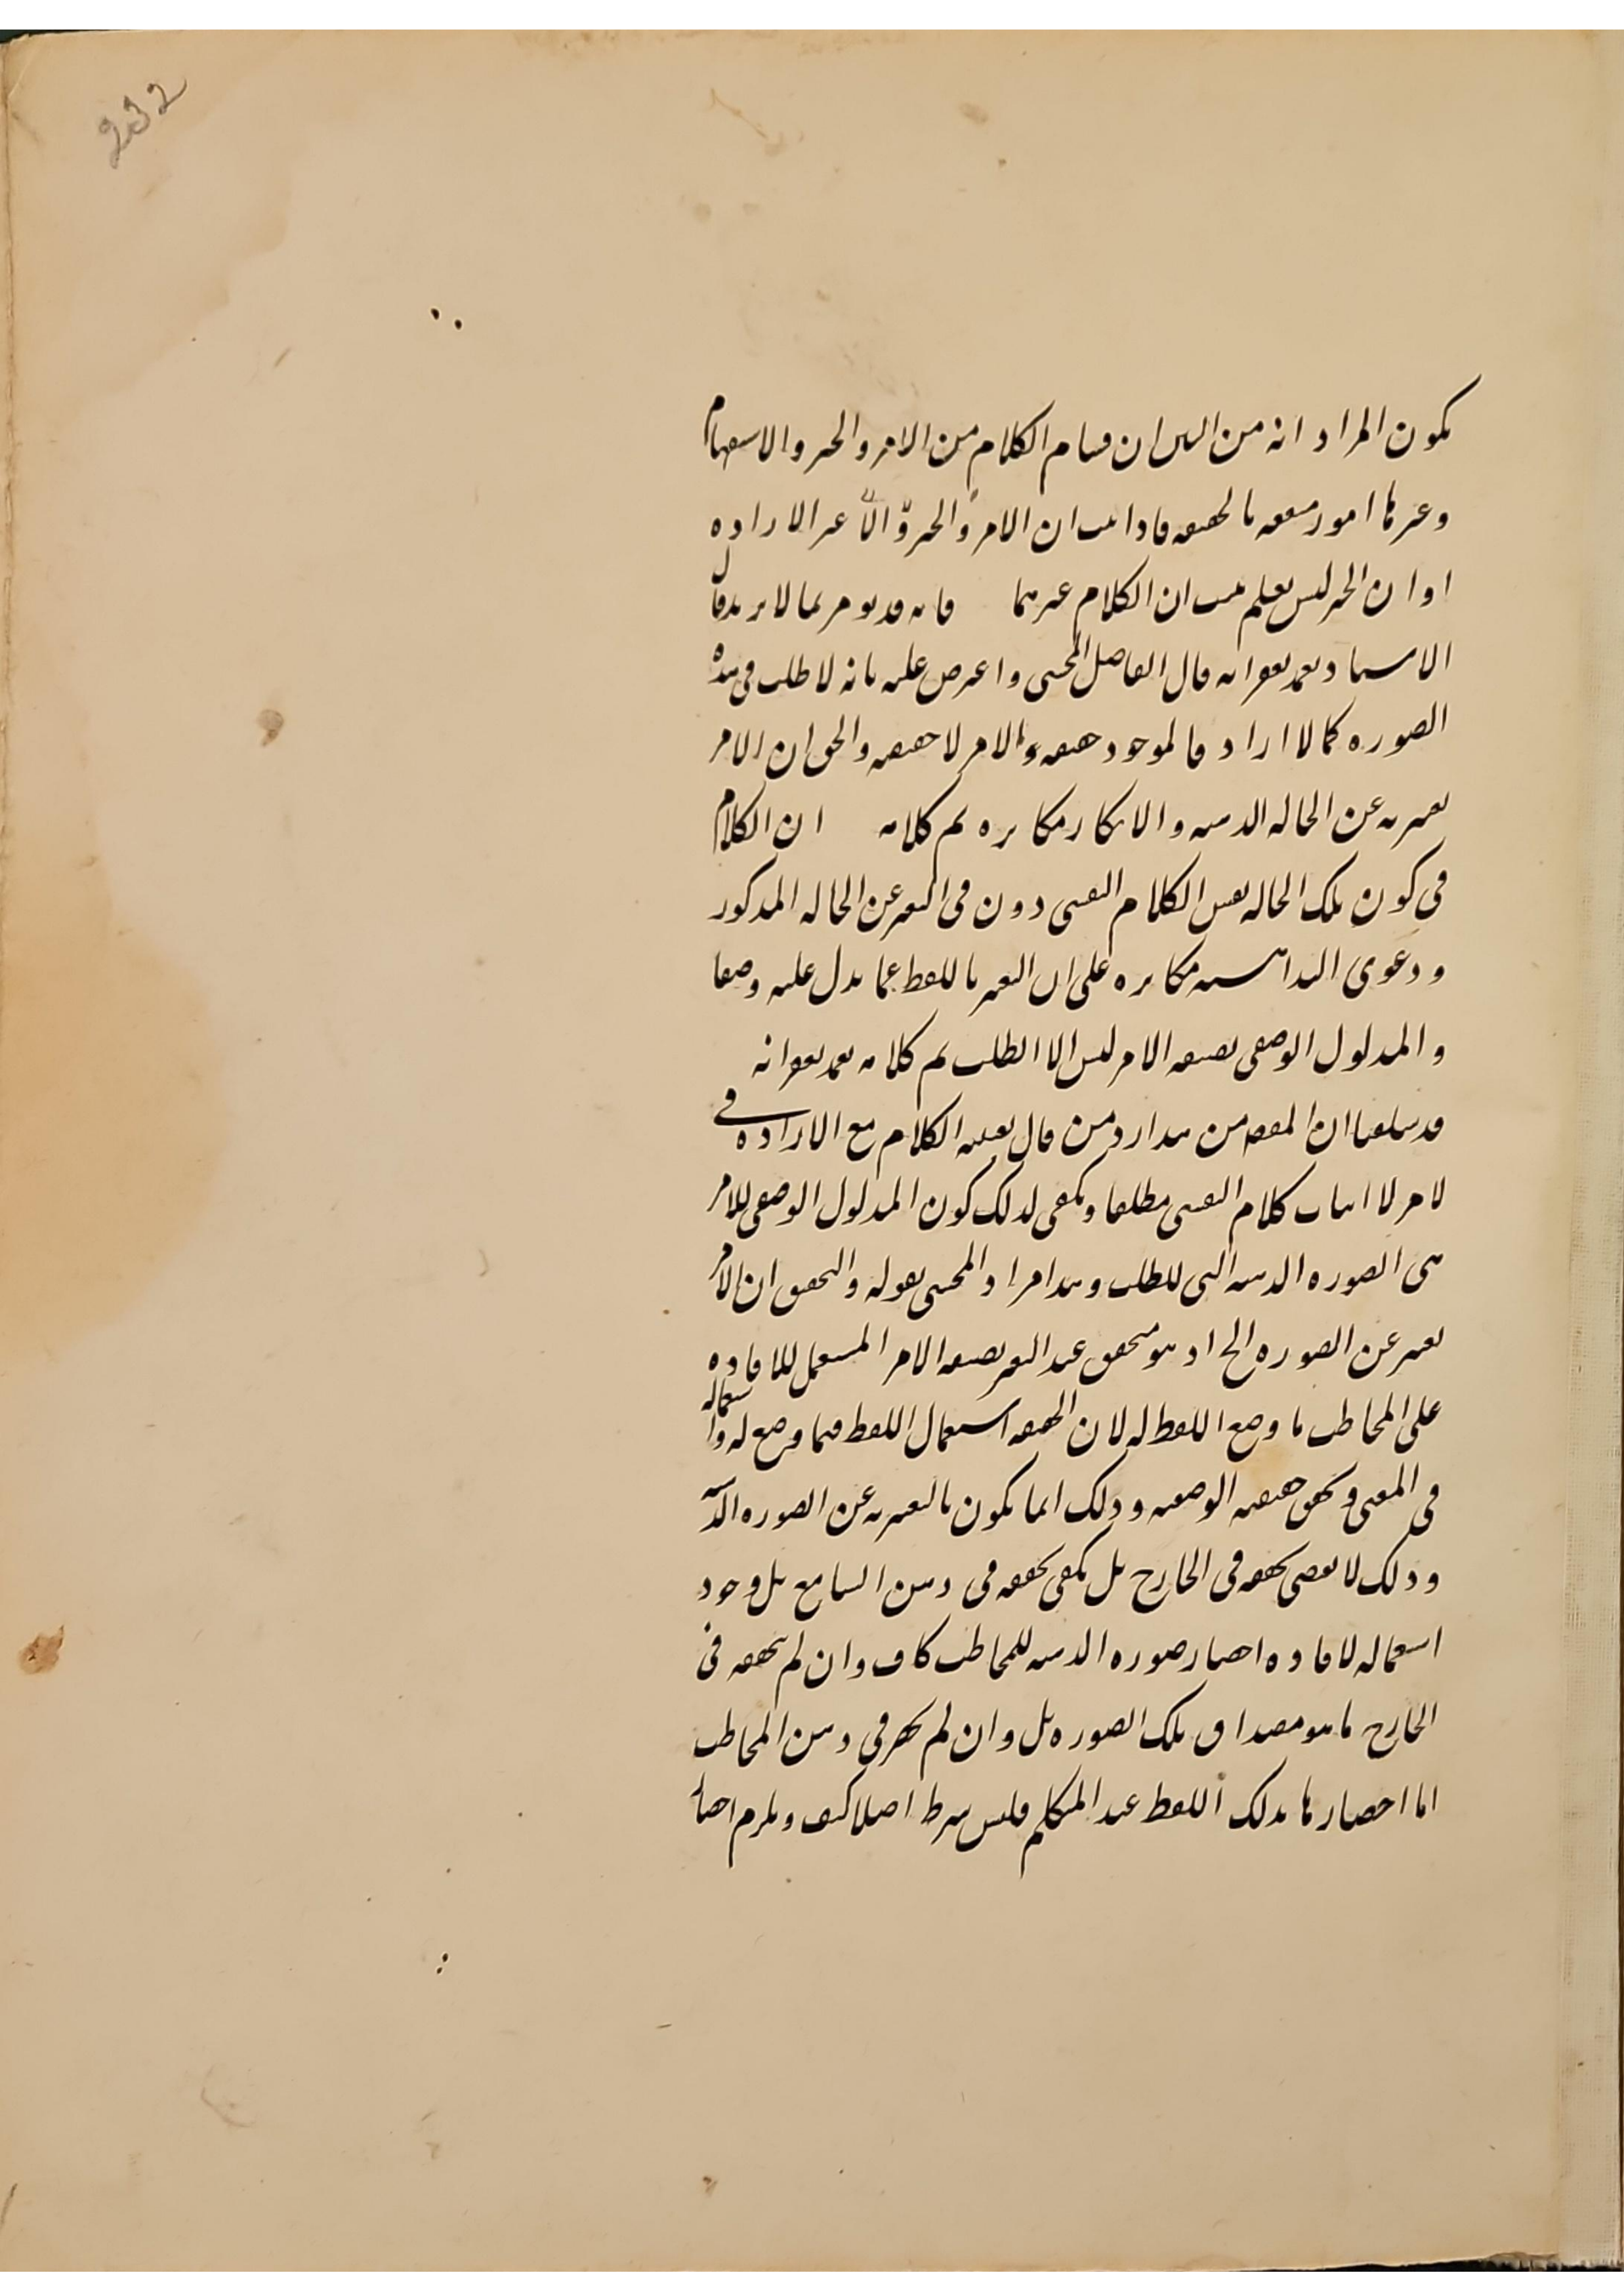 232
يكون المراد انه من البين ان اقسام الكلام من الامر والخبر والاستفهام
وغيرها امور متفقه بالحقيقه فاذا ثبت ان الامر والخبر والا غير الاراده
او ان الخبر ليس بعلم ثبت ان الكلام غيرهما فانه قد يومر بما لا يريد قال
الاستاد تغمد بغفرانه قال الفاضل المحشى واعترض عليه بانه لا طلب فى هذه
الصوره كما لا اراد فالموجود حقيقه والامر لا حقيقه والحق ان الامر
تعبير به عن الحاله الذهنيه والانكار مكابره تم كلامه ان الكلام
فى كون تلك الحاله نفس الكلام النفسى دون فى التعبير عن الحاله المذكور
ودعوى البداهه مكابره على ان التعبير باللفظ عما يدل عليه وضعا
والمدلول الوضعى بصيغه الامر ليس الا الطلب تم كلامه تغمد بغفرانه
قد سلفنا ان المقصود من هذا رد من قال بعينيه الكلام مع الاراده فى
لامر لا اثبات كلام النفسى مطلقا ويكفى لذلك كون المدلول الوضعى للامر
هى الصوره الذهنيه التى للطلب وهذا مراد المحشى بقوله والتحقيق ان الامر
تعبير عن الصوره الخ اذ هو متحقق عند التعبير بصيغه الامر المستعمل للافاده
على المخاطب ما وضع اللفظ له لان الحقيقه استعمال اللفظ فيما وضع له واستعماله
فى المعنى وتحقق حقيقه الوضعيه وذلك انما يكون بالتعبير به عن الصوره الذهنيه
وذلك لا يقتضى تحققه فى الخارج بل يكفى تحققه فى ذهن السامع بل وجود
استعماله لافاده احضار صوره الذهنيه للمخاطب كاف وان لم يتحقق فى
الخارج ما هو مصداق تلك الصوره بل وان لم يحضر فى ذهن المخاطب
اما احضارها بذلك اللفظ عند المتكلم فليس شرط اصلا كيف ويلزم احضا